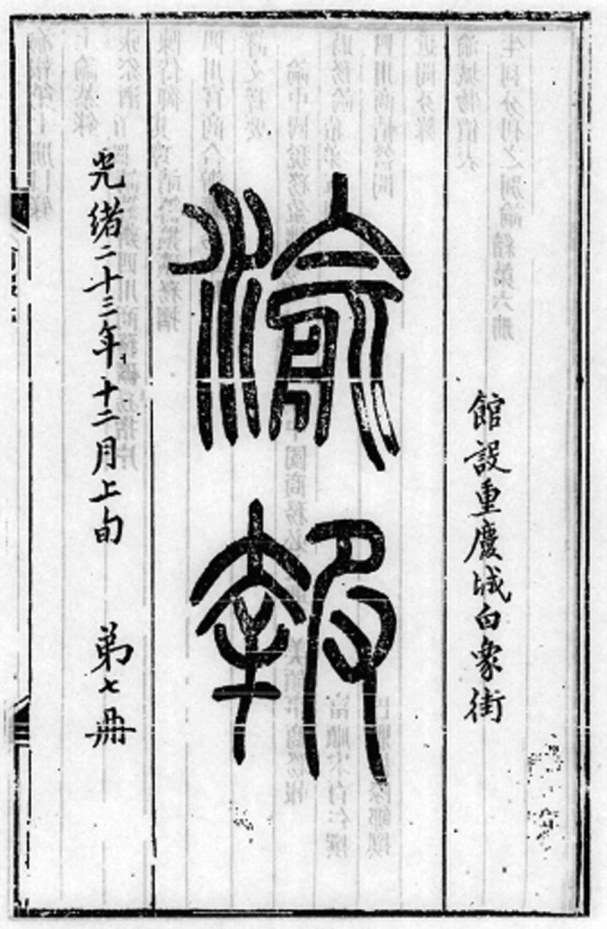 館設重慶城白象街
渝報
光緒二十三年十二月上旬 第七冊